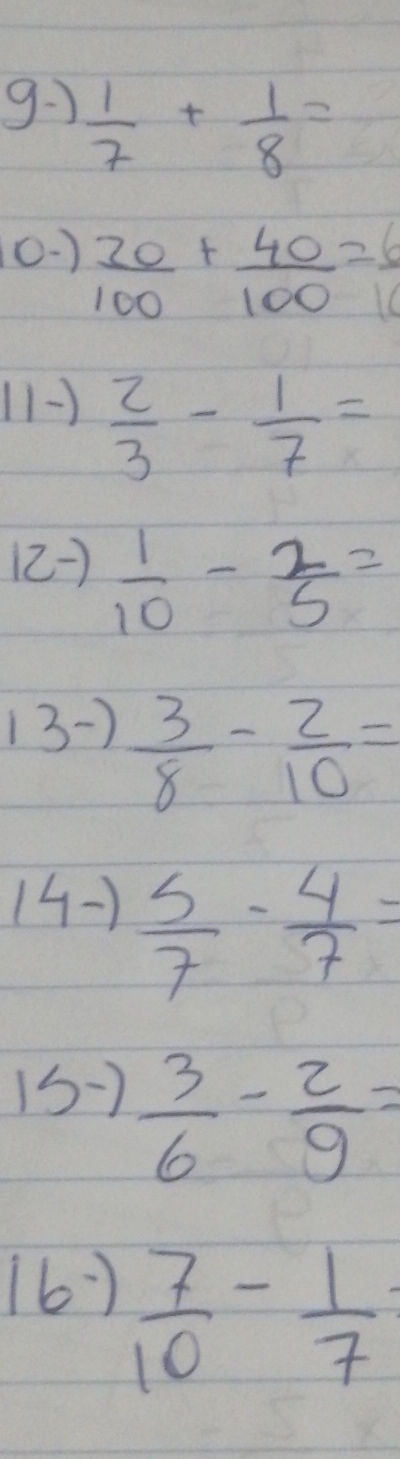 9-) 1/7 + 1/8 =
10-) 20/100 + 40/100 = 6
11-) 2/3 - 1/7 =
12-) 1/10 - 2/5 =
13-) 3/8 - 2/10 =
14-) 5/7 - 4/7 =
15-) 3/6 - 2/9 =
16-) 7/10 - 1/7